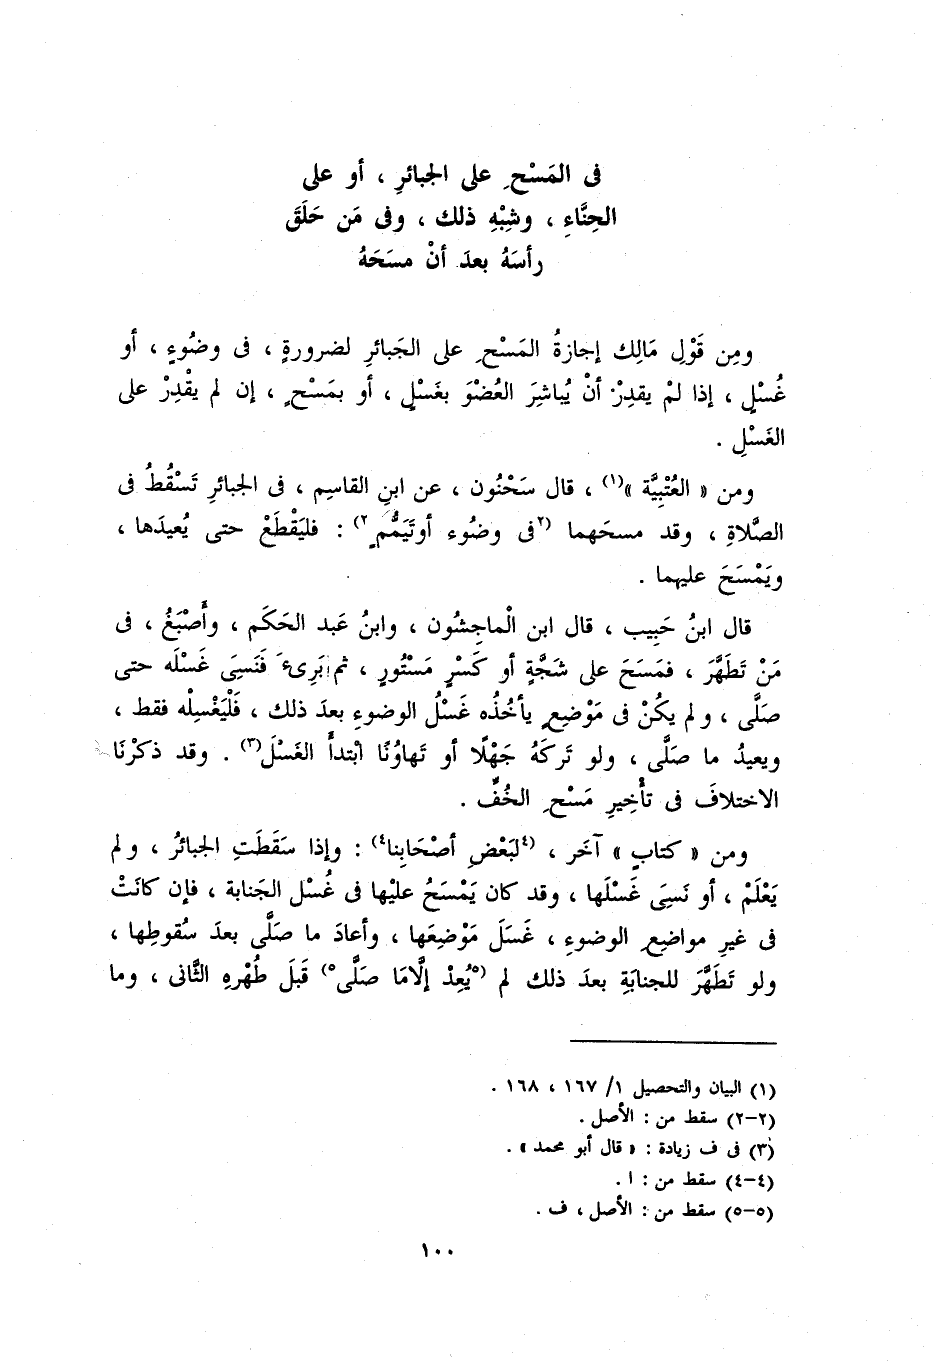 فى المَسْحِ على الجبائرِ ، أو على
الحِنَّاءِ ، وشِبْهِ ذلك ، وفى مَن حَلَقَ
رأسَهُ بعدَ أنْ مسَحَهُ
ومِن قَوْلِ مَالِك إجازةُ المَسْحِ على الجَبائرِ لضرورةٍ ، فى وضُوءٍ ، أو
غُسْلٍ ، إذا لمْ يقدِرْ أنْ يُباشِرَ العُضْوَ بغَسْلٍ ، أو بمَسْحٍ ، إن لم يقْدِرْ على
الغَسْلِ .
ومن « العُتْبِيَّة »(١) ، قال سَحْنُون ، عن ابنِ القاسِم ، فى الجبائرِ تَسْقُطُ فى
الصَّلاةِ ، وقد مسحَهما (٢فى وضُوء أوتَيَمُّمٍ٢) : فليَقْطَعْ حتى يُعيدَها ،
ويَمْسَحَ عليهما .
قال ابنُ حَبِيب ، قال ابن الْماجِشُون ، وابنُ عَبد الحَكَم ، وأَصْبَغُ ، فى
مَنْ تَطَهَّرَ ، فمَسَحَ على شَجَّةٍ أو كَسْرٍ مَسْتُورٍ ، ثم بَرِىءَ فَنَسِىَ غَسْلَه حتى
صلَّى ، ولم يكُنْ فى مَوْضِعٍ يأخُذُه غَسْلُ الوضوءِ بعدَ ذلك ، فَلْيَغْسِلْه فقط ،
ويعيدُ ما صلَّى ، ولو تَركَهُ جَهْلًا أو تَهاوُنًا ابْتدأَ الغَسْلَ(٣) . وقد ذكرْنَا
الاختلافَ فى تأْخِيرِ مَسْحِ الخُفِّ .
ومن « كتابٍ » آخَر ، (٤لبَعْضِ أصْحَابِنا٤) : وإذا سَقَطَتِ الجبائرُ ، ولم
يَعْلَمْ ، أو نَسِىَ غَسْلَها ، وقد كان يَمْسَحُ عليْها فى غُسْل الجَنابة ، فإن كانَتْ
فى غيرِ مواضِعِ الوضوءِ ، غَسَلَ مَوْضِعَها ، وأعادَ ما صلَّى بعدَ سُقوطِها ،
ولو تَطَهَّرَ للجنابَةِ بعدَ ذلك لم (٥يُعِدْ إلَّامَا صَلَّى٥) قَبلَ طُهْرِهِ الثَّانى ، وما
(١) البيان والتحصيل ١/ ١٦٧ ، ١٦٨ .
(٢-٢) سقط من : الأصل .
(٣) فى ف زيادة : « قال أبو محمد » .
(٤-٤) سقط من : ا .
(٥-٥) سقط من : الأصل ، ف .
١٠٠